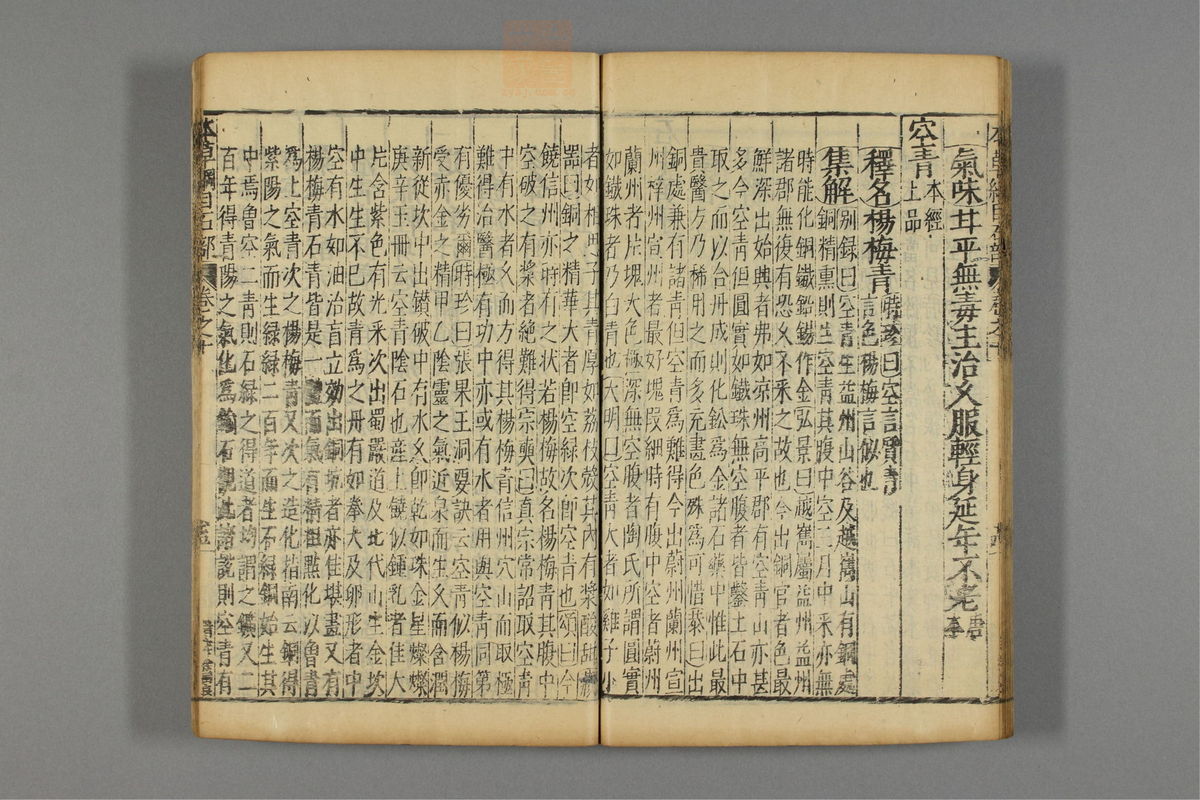 氣味甘平無毒主治久服輕身延年不老別錄
空青本經上品
釋名楊梅青時珍曰空言質青言色楊梅言似也
集解別錄曰空青生益州山谷及越巂山有銅處
銅精熏則生空青其腹中空三月中采亦無
時能化銅鐵鉛錫作金弘景曰越巂屬益州益州
諸郡無復有恐久不采之故也今出銅官者色最
鮮深出始興者弗如凉州高平郡有空青山亦甚
多今空青但圓實如鐵珠無空腹者皆鑿土石中
取之而以合丹成則化鉛爲金諸石藥中惟此最
貴醫方乃稀用之而多充畫色殊爲可惜恭曰出
銅處兼有諸青但空青爲難得今出蔚州蘭州宣
州梓州宣州者最好塊段細時有腹中空者蔚州
蘭州者片塊大色極深無空腹者陶氏所謂圓實
如鐵珠者乃白青也大明曰空青大者如雞子小
者如相思子其青厚如荔枝殼其內有漿酸甜藏
器曰銅之精華大者卽空綠次卽空青也頌曰今
饒信州亦時有之狀若楊梅故名楊梅青其腹中
空破之有漿者絕難得宗奭曰真宗常詔取空青
中有水者久而方得其楊梅青信州穴山而取極
難得治醫極有功中亦或有水者用與空青同第
有優劣爾時珍曰張果玉洞要訣云空青似楊梅
受赤金之精甲乙陰靈之氣近泉而生久而含潤
新從坎中出鑽破中有水久卽乾如珠金星燦燦
庚辛玉冊云空青陰石也產上饒似鍾乳者佳大
片含紫色有光采次出蜀嚴道及北代山生金坎
中生生不已故青爲之丹有如拳大及卵形者中
空有水如油治盲立效出銅坑者亦佳堪畫又有
楊梅青石青皆是一體而氣有精粗點化以曾青
爲上空青次之楊梅青又次之造化指南云銅得
紫陽之氣而生綠綠二百年而生石綠銅始生其
中焉曾空二青則石綠之得道者均謂之鑛又二
百年得青陽之氣化爲鍮石觀此諸說則空青有
本草綱目石部
卷之十